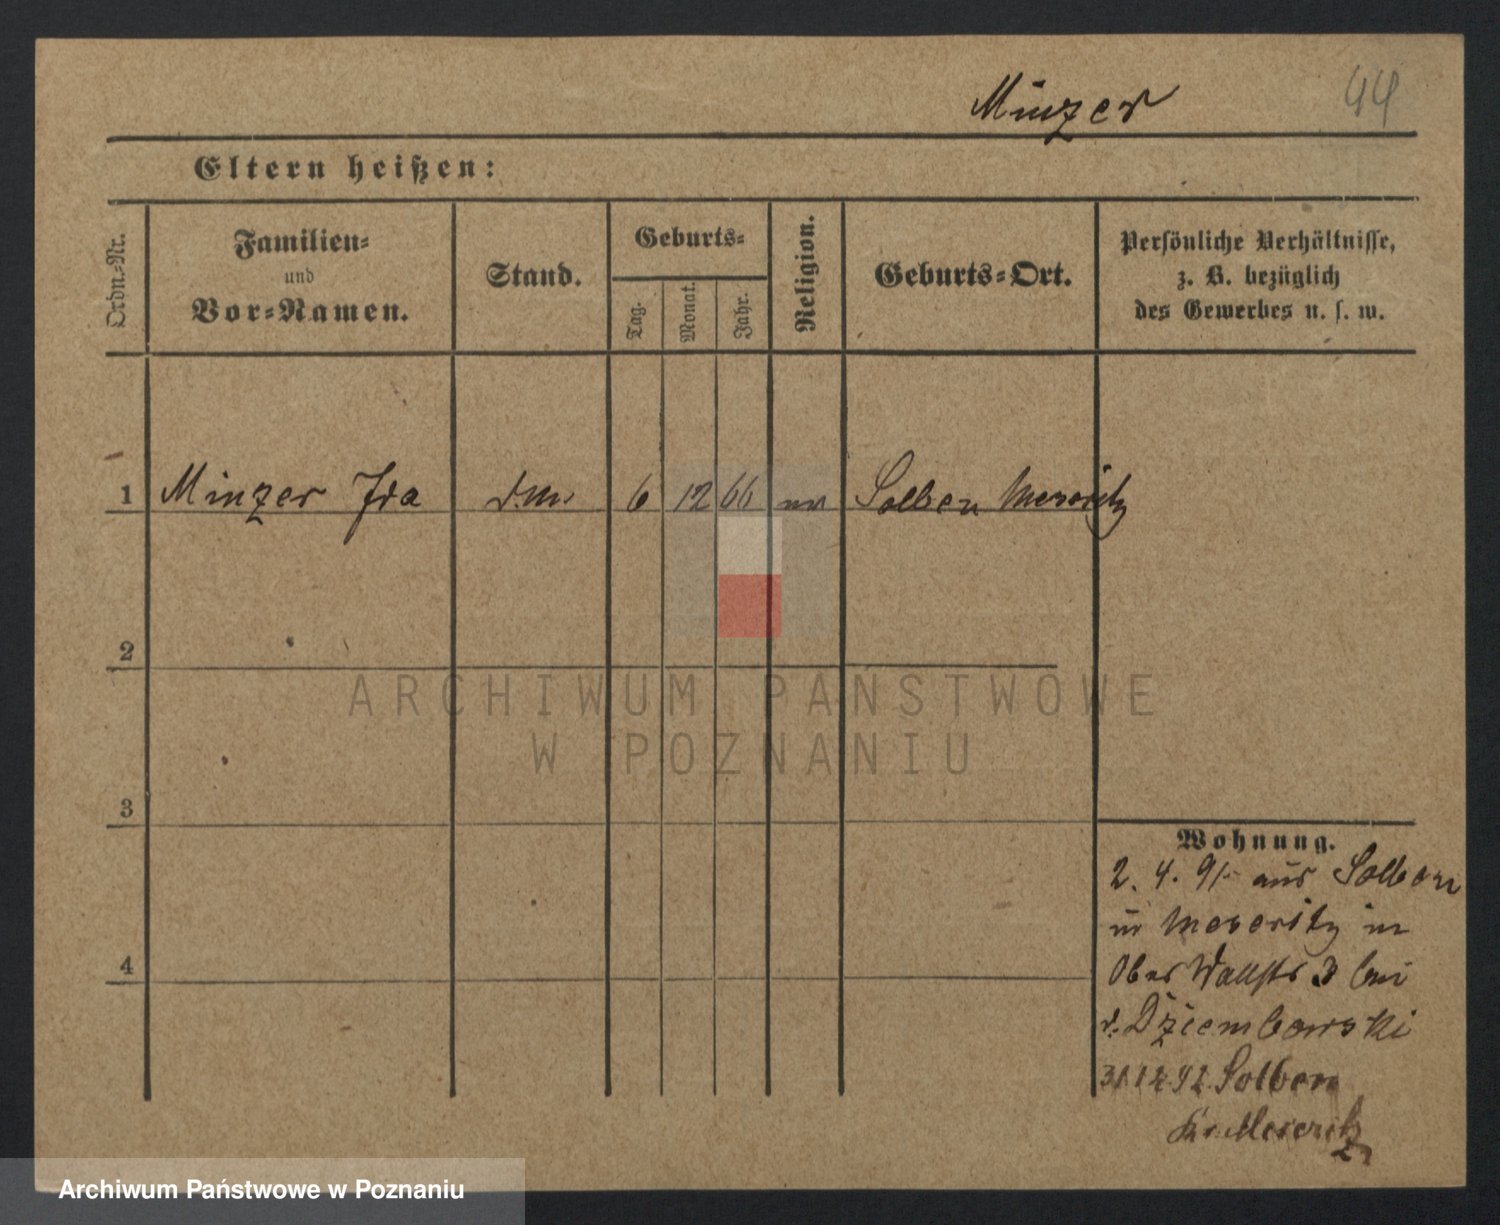 Minzer 44
Eltern heißen:
Ordn.-Nr.
Familien-
und
Vor-Namen.
Stand.
Geburts-
Tag.
Monat.
Jahr.
Religion.
Geburts-Ort.
Persönliche Verhältnisse,
z. B. bezüglich
des Gewerbes u. s. w.
1 Minzer Ida 6 12 66 Solben Meseritz
2
3
4
ARCHIWUM PAŃSTWOWE
W POZNANIU
Wohnung.
2. 4. 91 aus Solben
in Meseritz in
Ober Wallstr 3 bei
v. Dziembowski
31.12.92 Solben
Kr. Meseritz
Archiwum Państwowe w Poznaniu